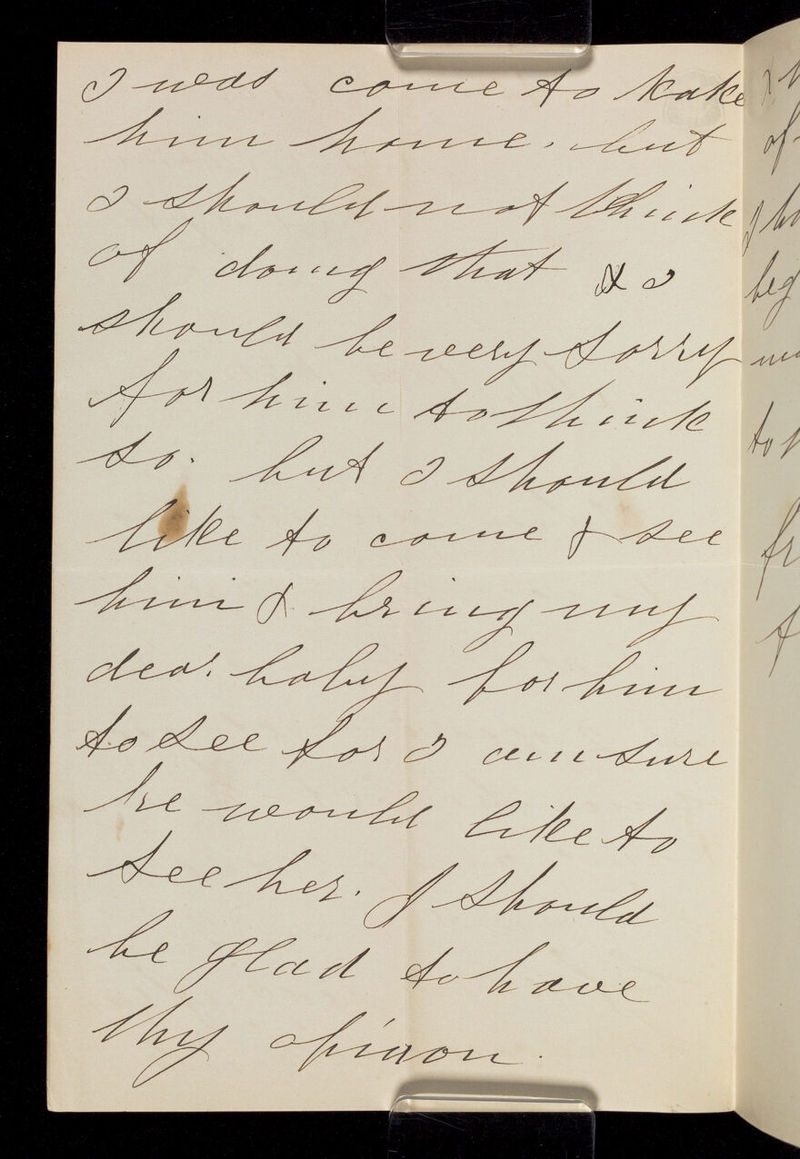 I was come to take
him home. but
I should not think
of doing that & I
should be very sorry
for him to think
so. but I should
like to come & see
him & bring my
dear baby for him
to see for I am sure
he would like to
see her. I should
be glad to have
thy opinion.
of
beg
to